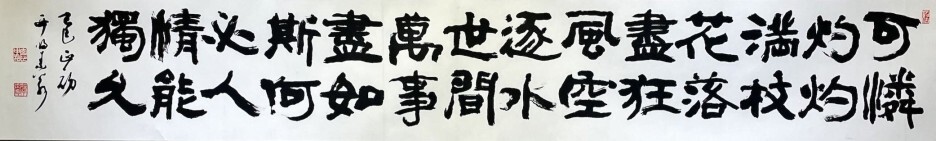 可憐
灼灼
滿枝
花落
盡狂
風空
逐水
世間
萬事
盡如
斯何
必人
情能
獨久